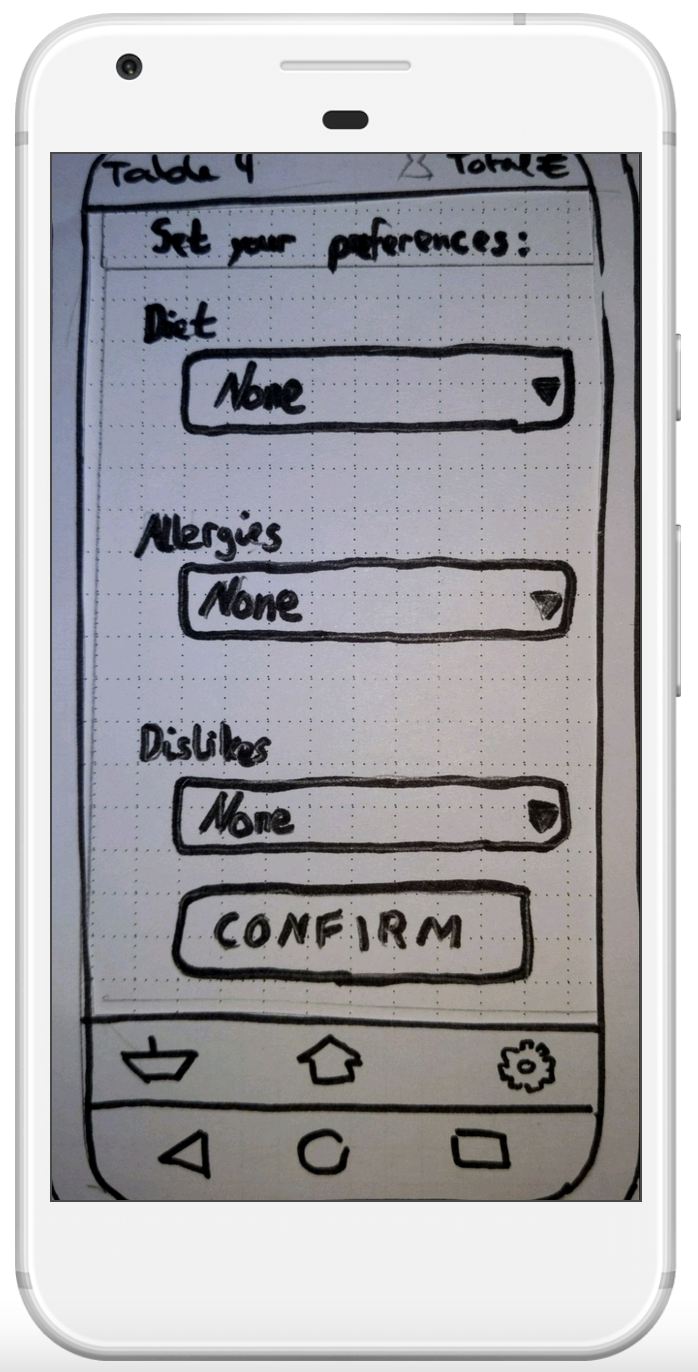 Table 4 Total €
Set your preferences:
Diet
None
Allergies
None
Dislikes
None
CONFIRM